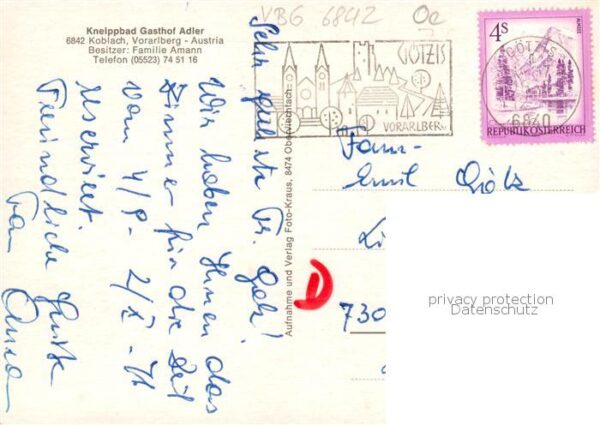 Kneippbad Gasthof Adler
6842 Koblach, Vorarlberg - Austria
Besitzer: Familie Amann
Telefon (05523) 74 51 16
VBG 6842
Oe
GÖTZIS
VORARLBERG
4S
ALMSEE
REPUBLIK ÖSTERREICH
GÖTZIS
6840
Sehr geehrte Fr. Götz!
Wir haben Ihnen das
Zimmer für die Zeit
vom 4/9 - 2/X - 76
reserviert.
Freundliche Grüße
Fam Amann
Aufnahme und Verlag Foto-Kraus, 8474 Oberviechtach
Fam.
Emil Götz
Li
730
D
privacy protection
Datenschutz